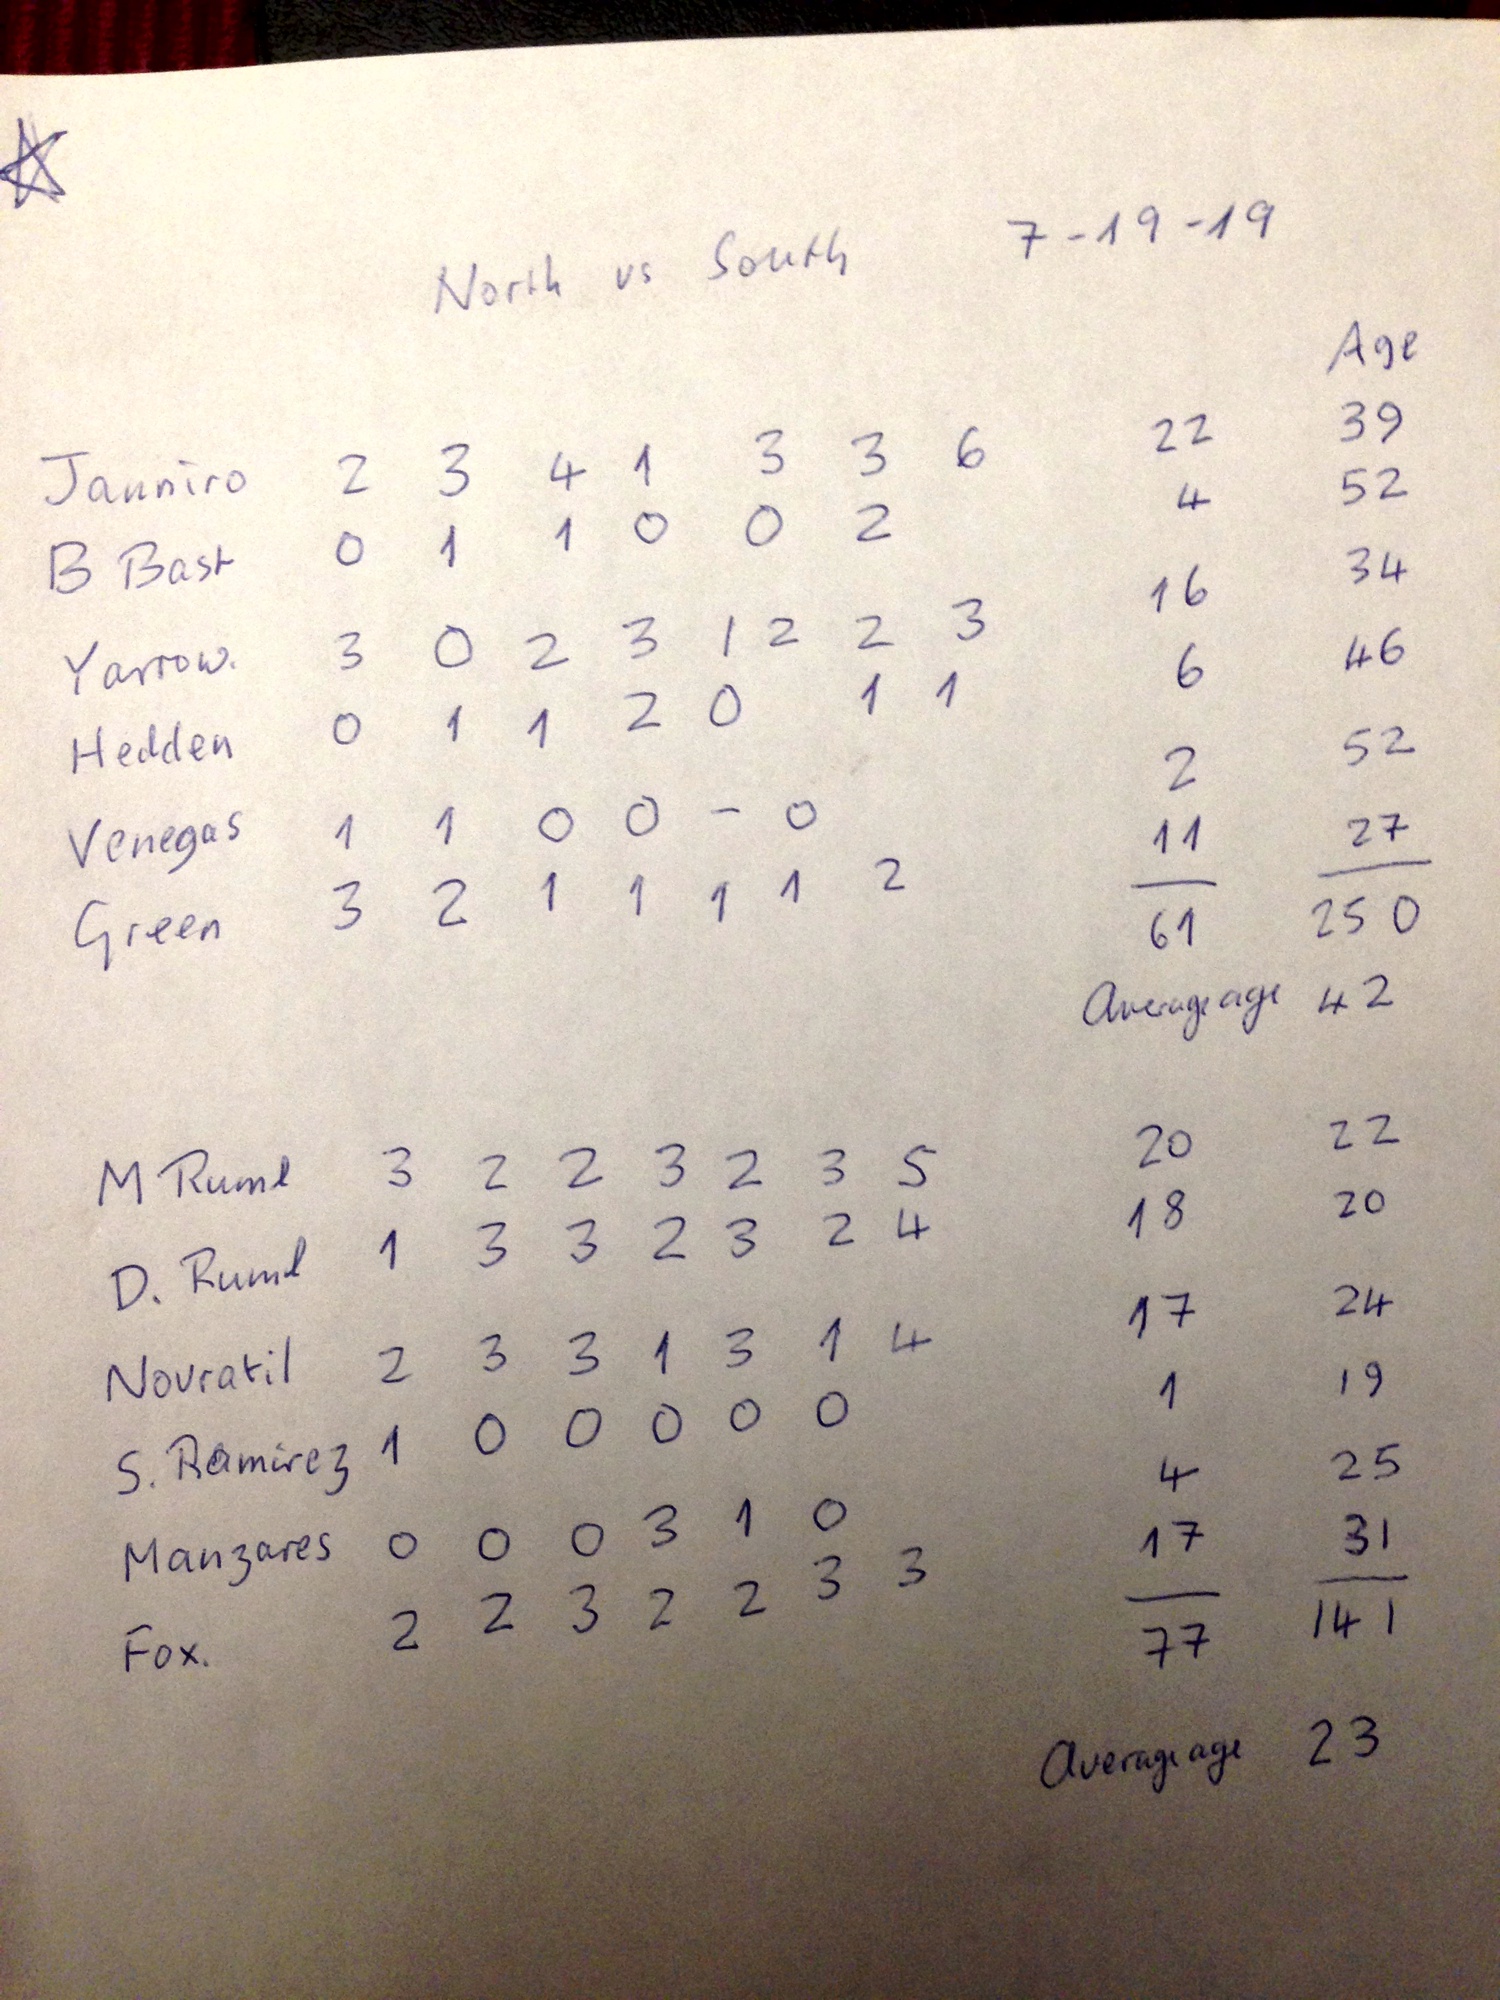 North vs South 7-19-19
Age
Janniro 2 3 4 1 3 3 6 22 39
B Bast 0 1 1 0 0 2 4 52
Yarrow. 3 0 2 3 1 2 2 3 16 34
Hedden 0 1 1 2 0 1 1 6 46
Venegas 1 1 0 0 - 0 2 52
Green 3 2 1 1 1 1 2 11 27
61 250
Average age 42
M Ruml 3 2 2 3 2 3 5 20 22
D. Ruml 1 3 3 2 3 2 4 18 20
Novratil 2 3 3 1 3 1 4 17 24
S. Ramirez 1 0 0 0 0 0 1 19
Manzares 0 0 0 3 1 0 4 25
Fox. 2 2 3 2 2 3 3 17 31
77 141
Average age 23